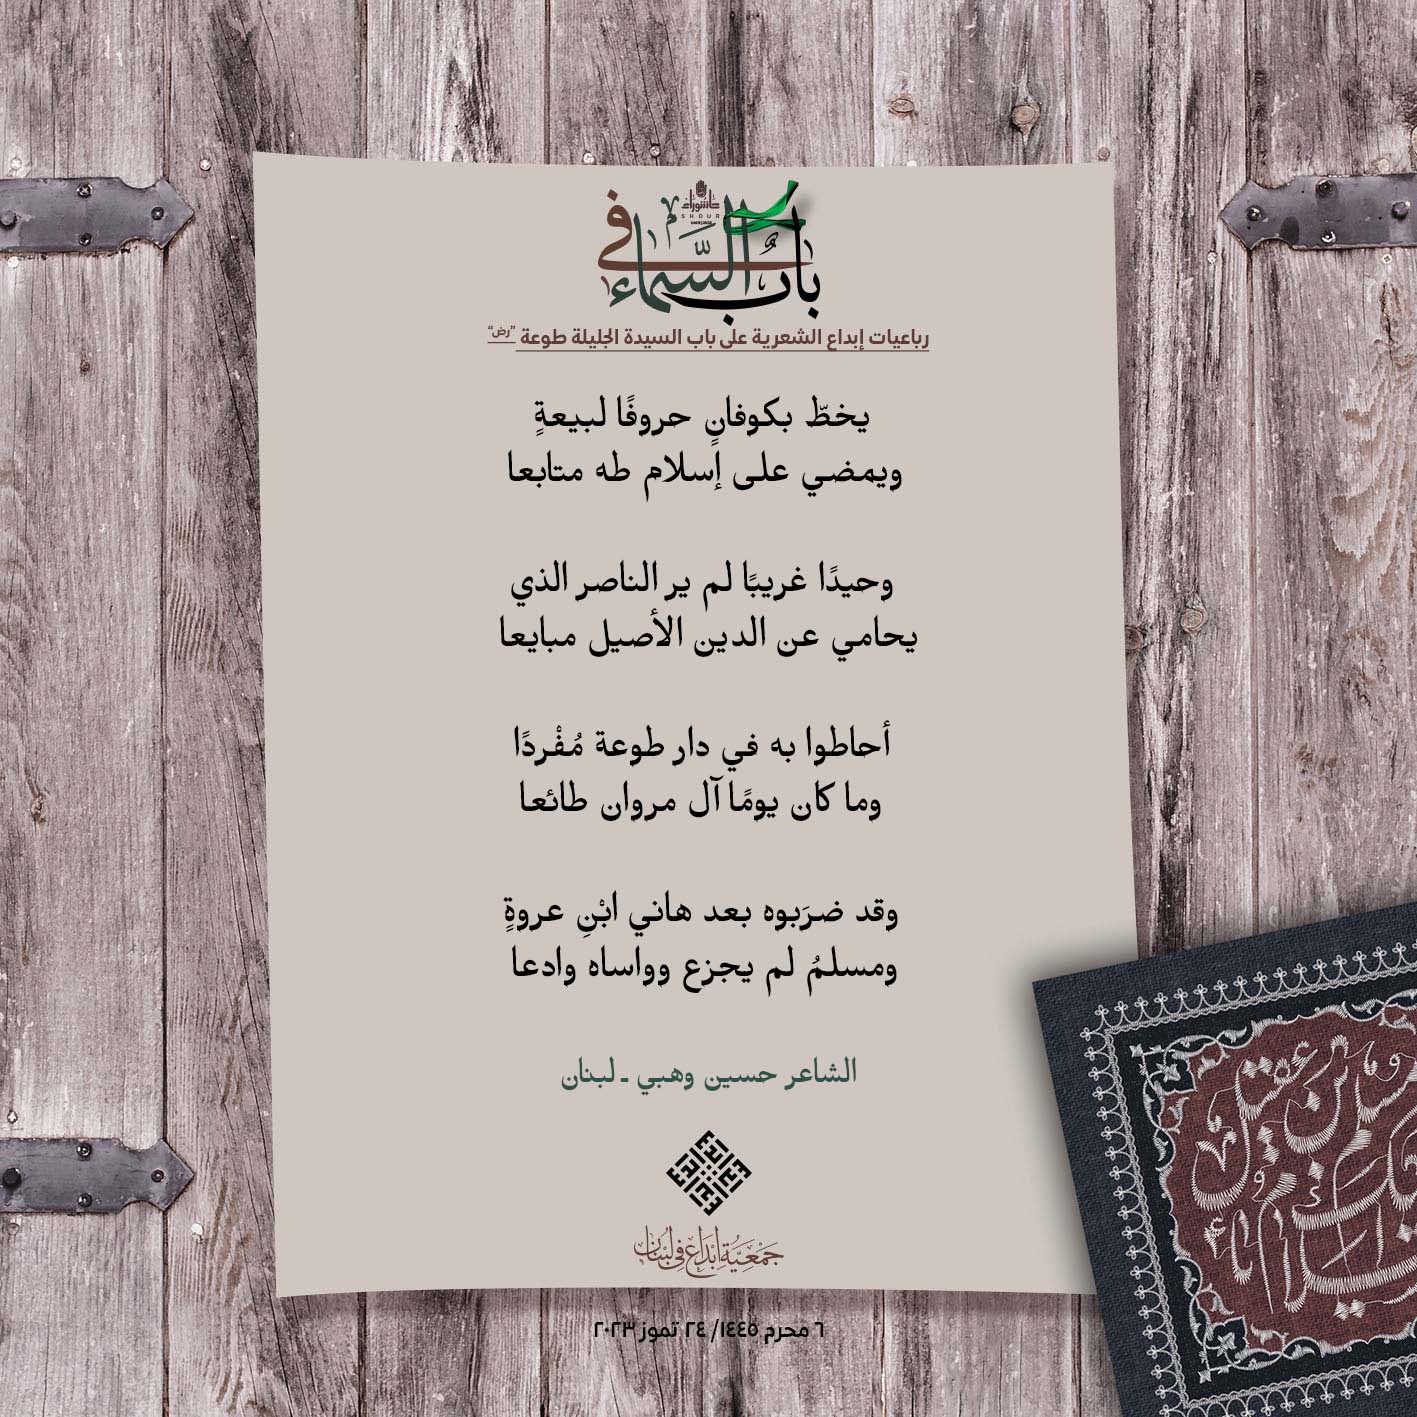 عاشوراء
باب في السماء
رباعيات إبداع الشعرية على باب السيدة الجليلة طوعة "رض"
يخطّ بكوفانٍ حروفًا لبيعةٍ
ويمضي على إسلام طه متابعا
وحيدًا غريبًا لم ير الناصر الذي
يحامي عن الدين الأصيل مبايعا
أحاطوا به في دار طوعة مُفْردًا
وما كان يومًا آل مروان طائعا
وقد ضرَبوه بعد هاني ابْنِ عروةٍ
ومسلمُ لم يجزع وواساه وادعا
الشاعر حسين وهبي - لبنان
جمعية إبداع في لبنان
٦ محرم ١٤٤٥/ ٢٤ تموز ٢٠٢٣
السلام